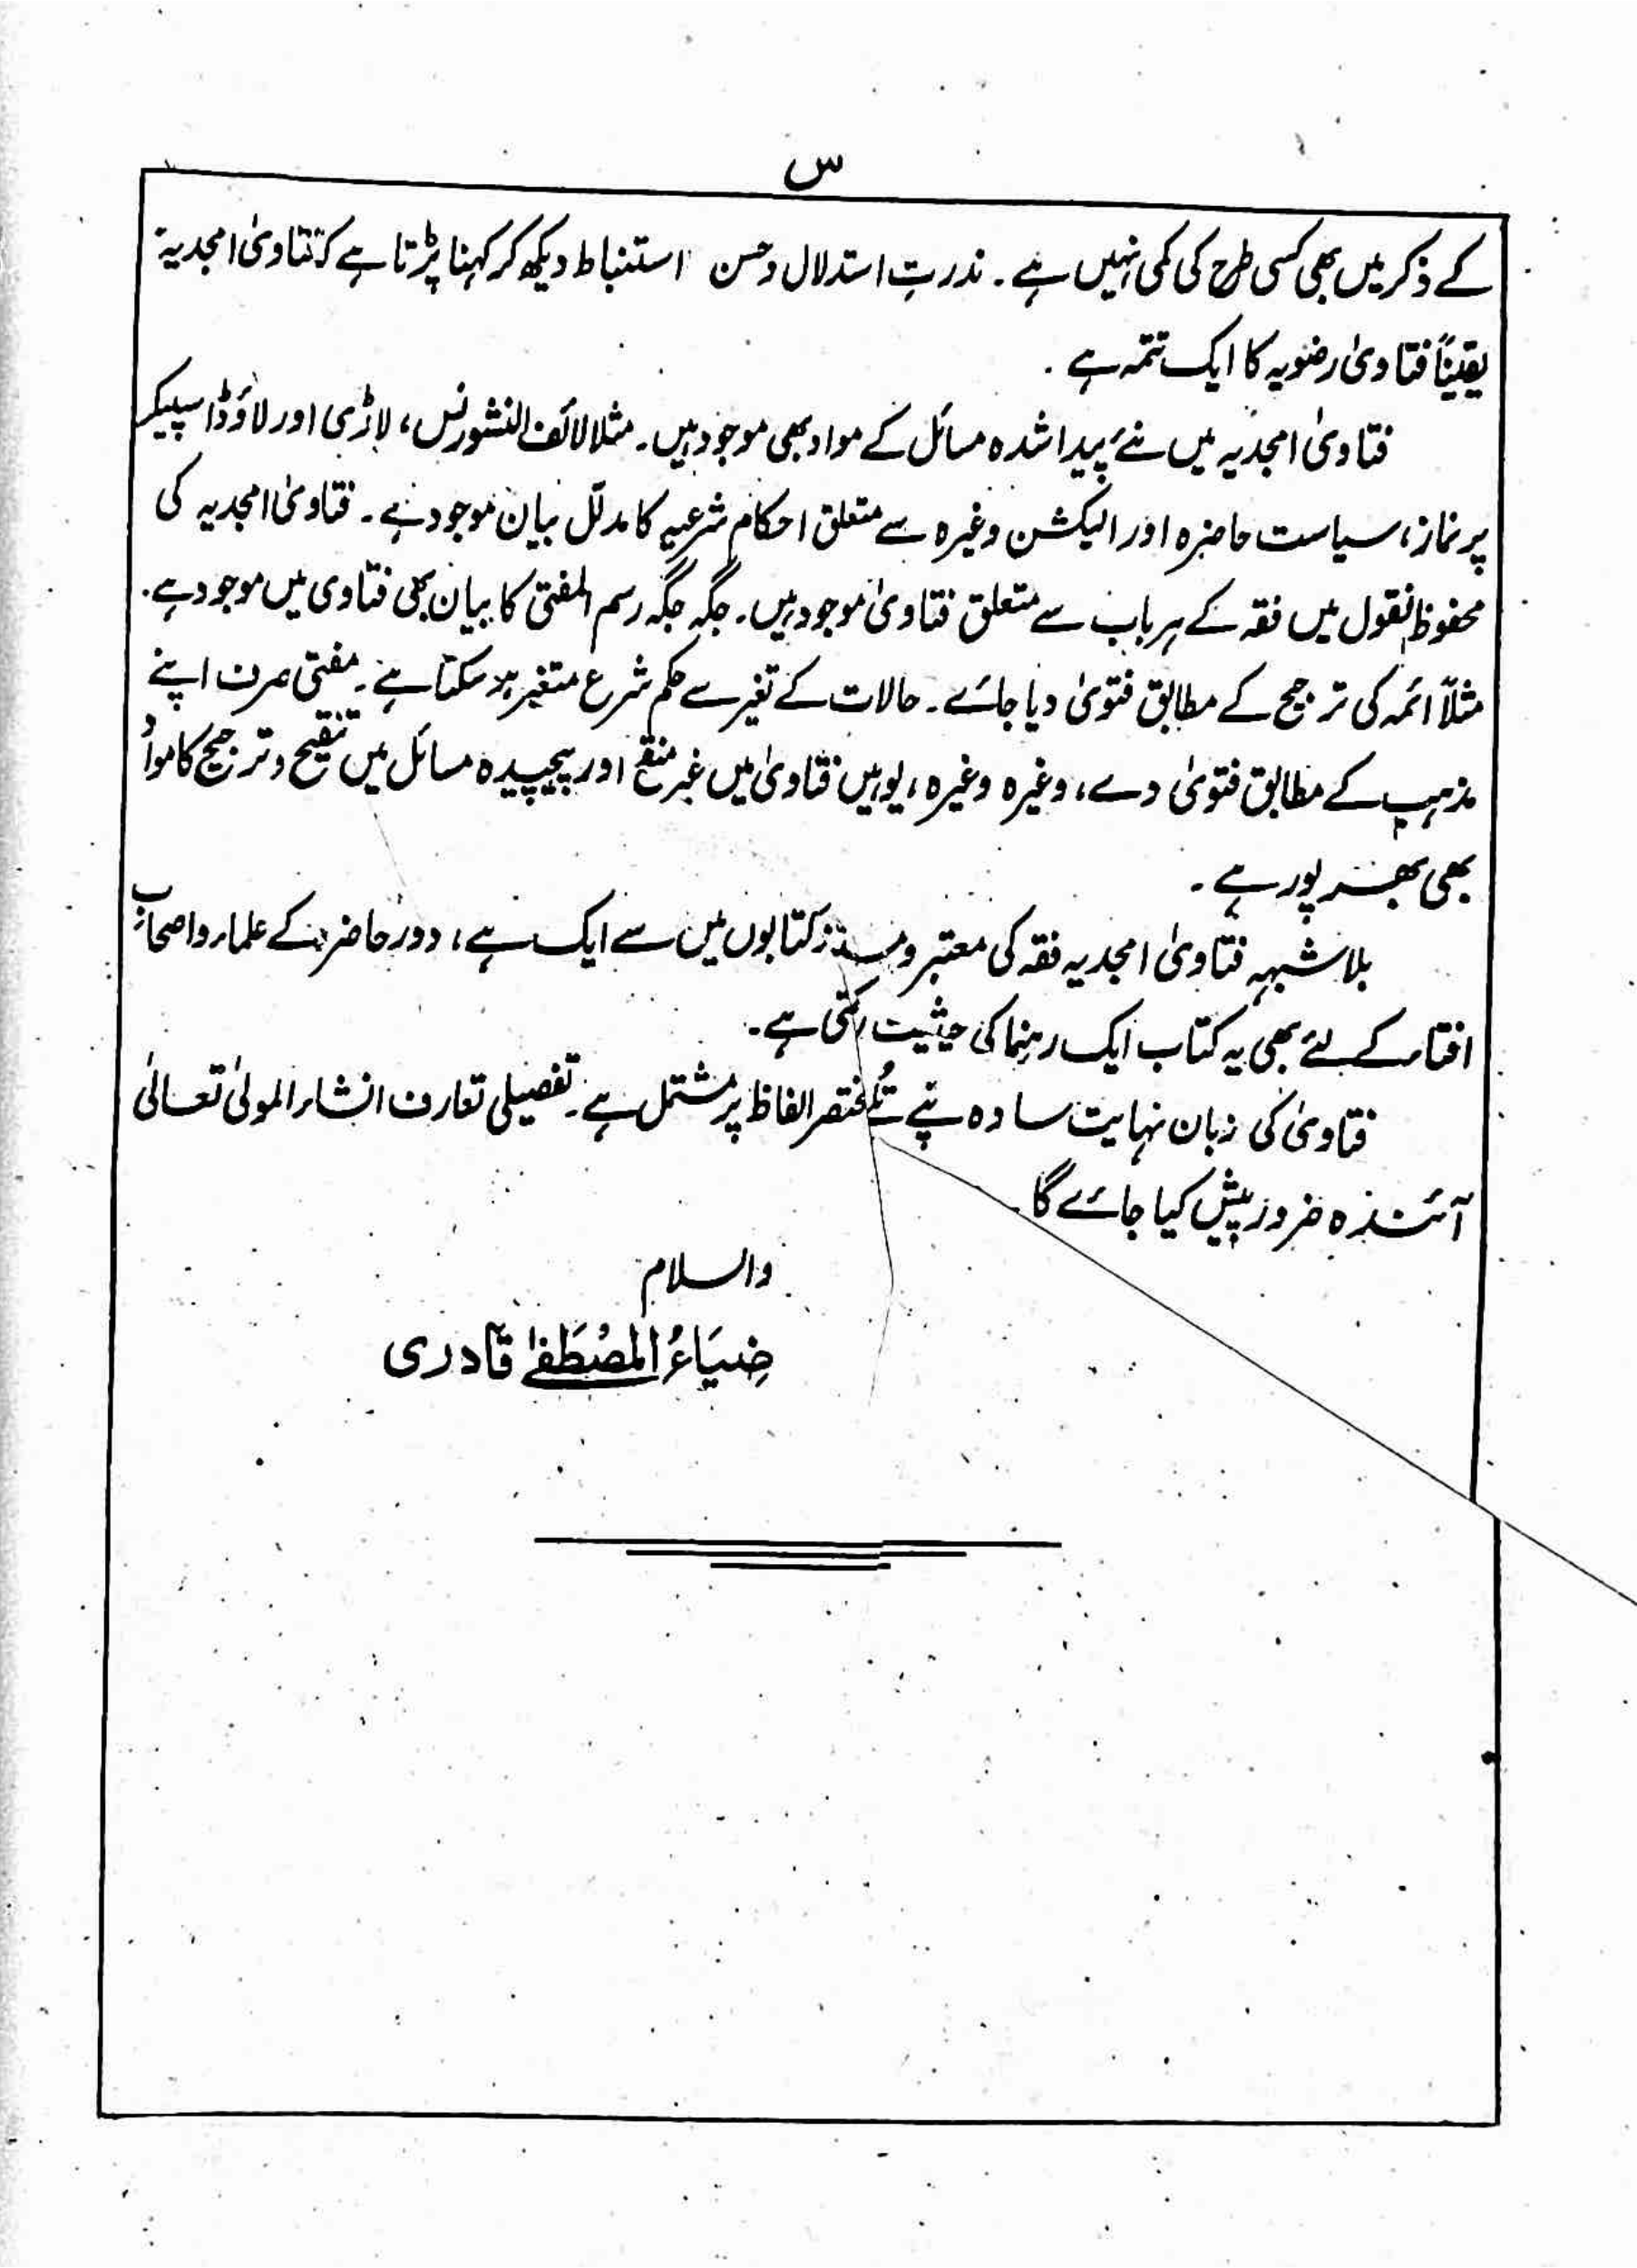 س
کے ذکر میں بھی کسی طرح کی کمی نہیں ہے۔ ندرتِ استدلال وحسن استنباط دیکھ کر کہنا پڑتا ہے کہ فتاویٰ امجدیہ
یقیناً فتاویٰ رضویہ کا ایک تتمہ ہے۔
فتاویٰ امجدیہ میں نئے پیدا شدہ مسائل کے مواد بھی موجود ہیں۔ مثلا لائف انشورنس، لاٹری اور لاؤڈ اسپیکر
پر نماز، سیاست حاضرہ اور الیکشن وغیرہ سے متعلق احکام شرعیہ کا مدلّل بیان موجود ہے۔ فتاویٰ امجدیہ کی
محفوظ نقول میں فقہ کے ہر باب سے متعلق فتاویٰ موجود ہیں۔ جگہ جگہ رسم المفتی کا بیان بھی فتاویٰ میں موجود ہے۔
مثلاً ائمہ کی ترجیح کے مطابق فتویٰ دیا جائے۔ حالات کے تغیر سے حکم شرع متغیر ہو سکتا ہے۔ مفتی صرف اپنے
مذہب کے مطابق فتویٰ دے، وغیرہ وغیرہ، یوہیں فتاویٰ میں غیر منقح اور پیچیدہ مسائل میں تنقیح و ترجیح کا مواد
بھی بھرپور ہے۔
بلاشبہہ فتاویٰ امجدیہ فقہ کی معتبر و مستند کتابوں میں سے ایک ہے، دور حاضرہ کے علماء و اصحاب
افتاء کے لئے بھی یہ کتاب ایک رہنما کی حیثیت رکھتی ہے۔
فتاویٰ کی زبان نہایت سادہ نپے تُلے مختصر الفاظ پر مشتمل ہے۔ تفصیلی تعارف انشاء المولیٰ تعالیٰ
آئندہ ضرور پیش کیا جائے گا۔
والسلام
ضِیَاءُ المُصْطَفیٰ قادری